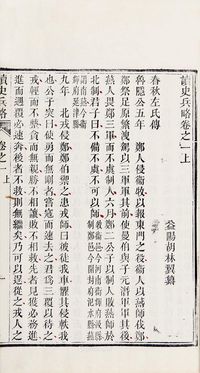 讀史兵略卷之一上
益陽胡林翼纂
春秋左氏傳
魯隱公五年 鄭人侵衛牧以報東門之役衛人以燕師伐鄭
鄭祭足原繁洩駕以三軍軍其前使曼伯與子元潛軍軍其後
燕人畏鄭三軍而不虞制人六月鄭二公子以制人敗燕師於
北制君子曰不備不虞不可以師
九年 北戎侵鄭鄭伯禦之患戎師曰彼徒我車懼其侵軼我
也公子突曰使勇而無剛者嘗寇而速去之君爲三覆以待之
戎輕而不整貪而無親勝不相讓敗不相救先者見獲必務進
進而遇覆必速奔後者不救則無繼矣乃可以逞從之戎人之
讀史兵略
卷之一上